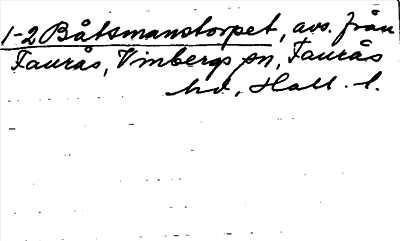 1-2 Båtsmanstorpet, avs. från
Faurås, Vinbergs sn, Faurås
hd, Hall. l.